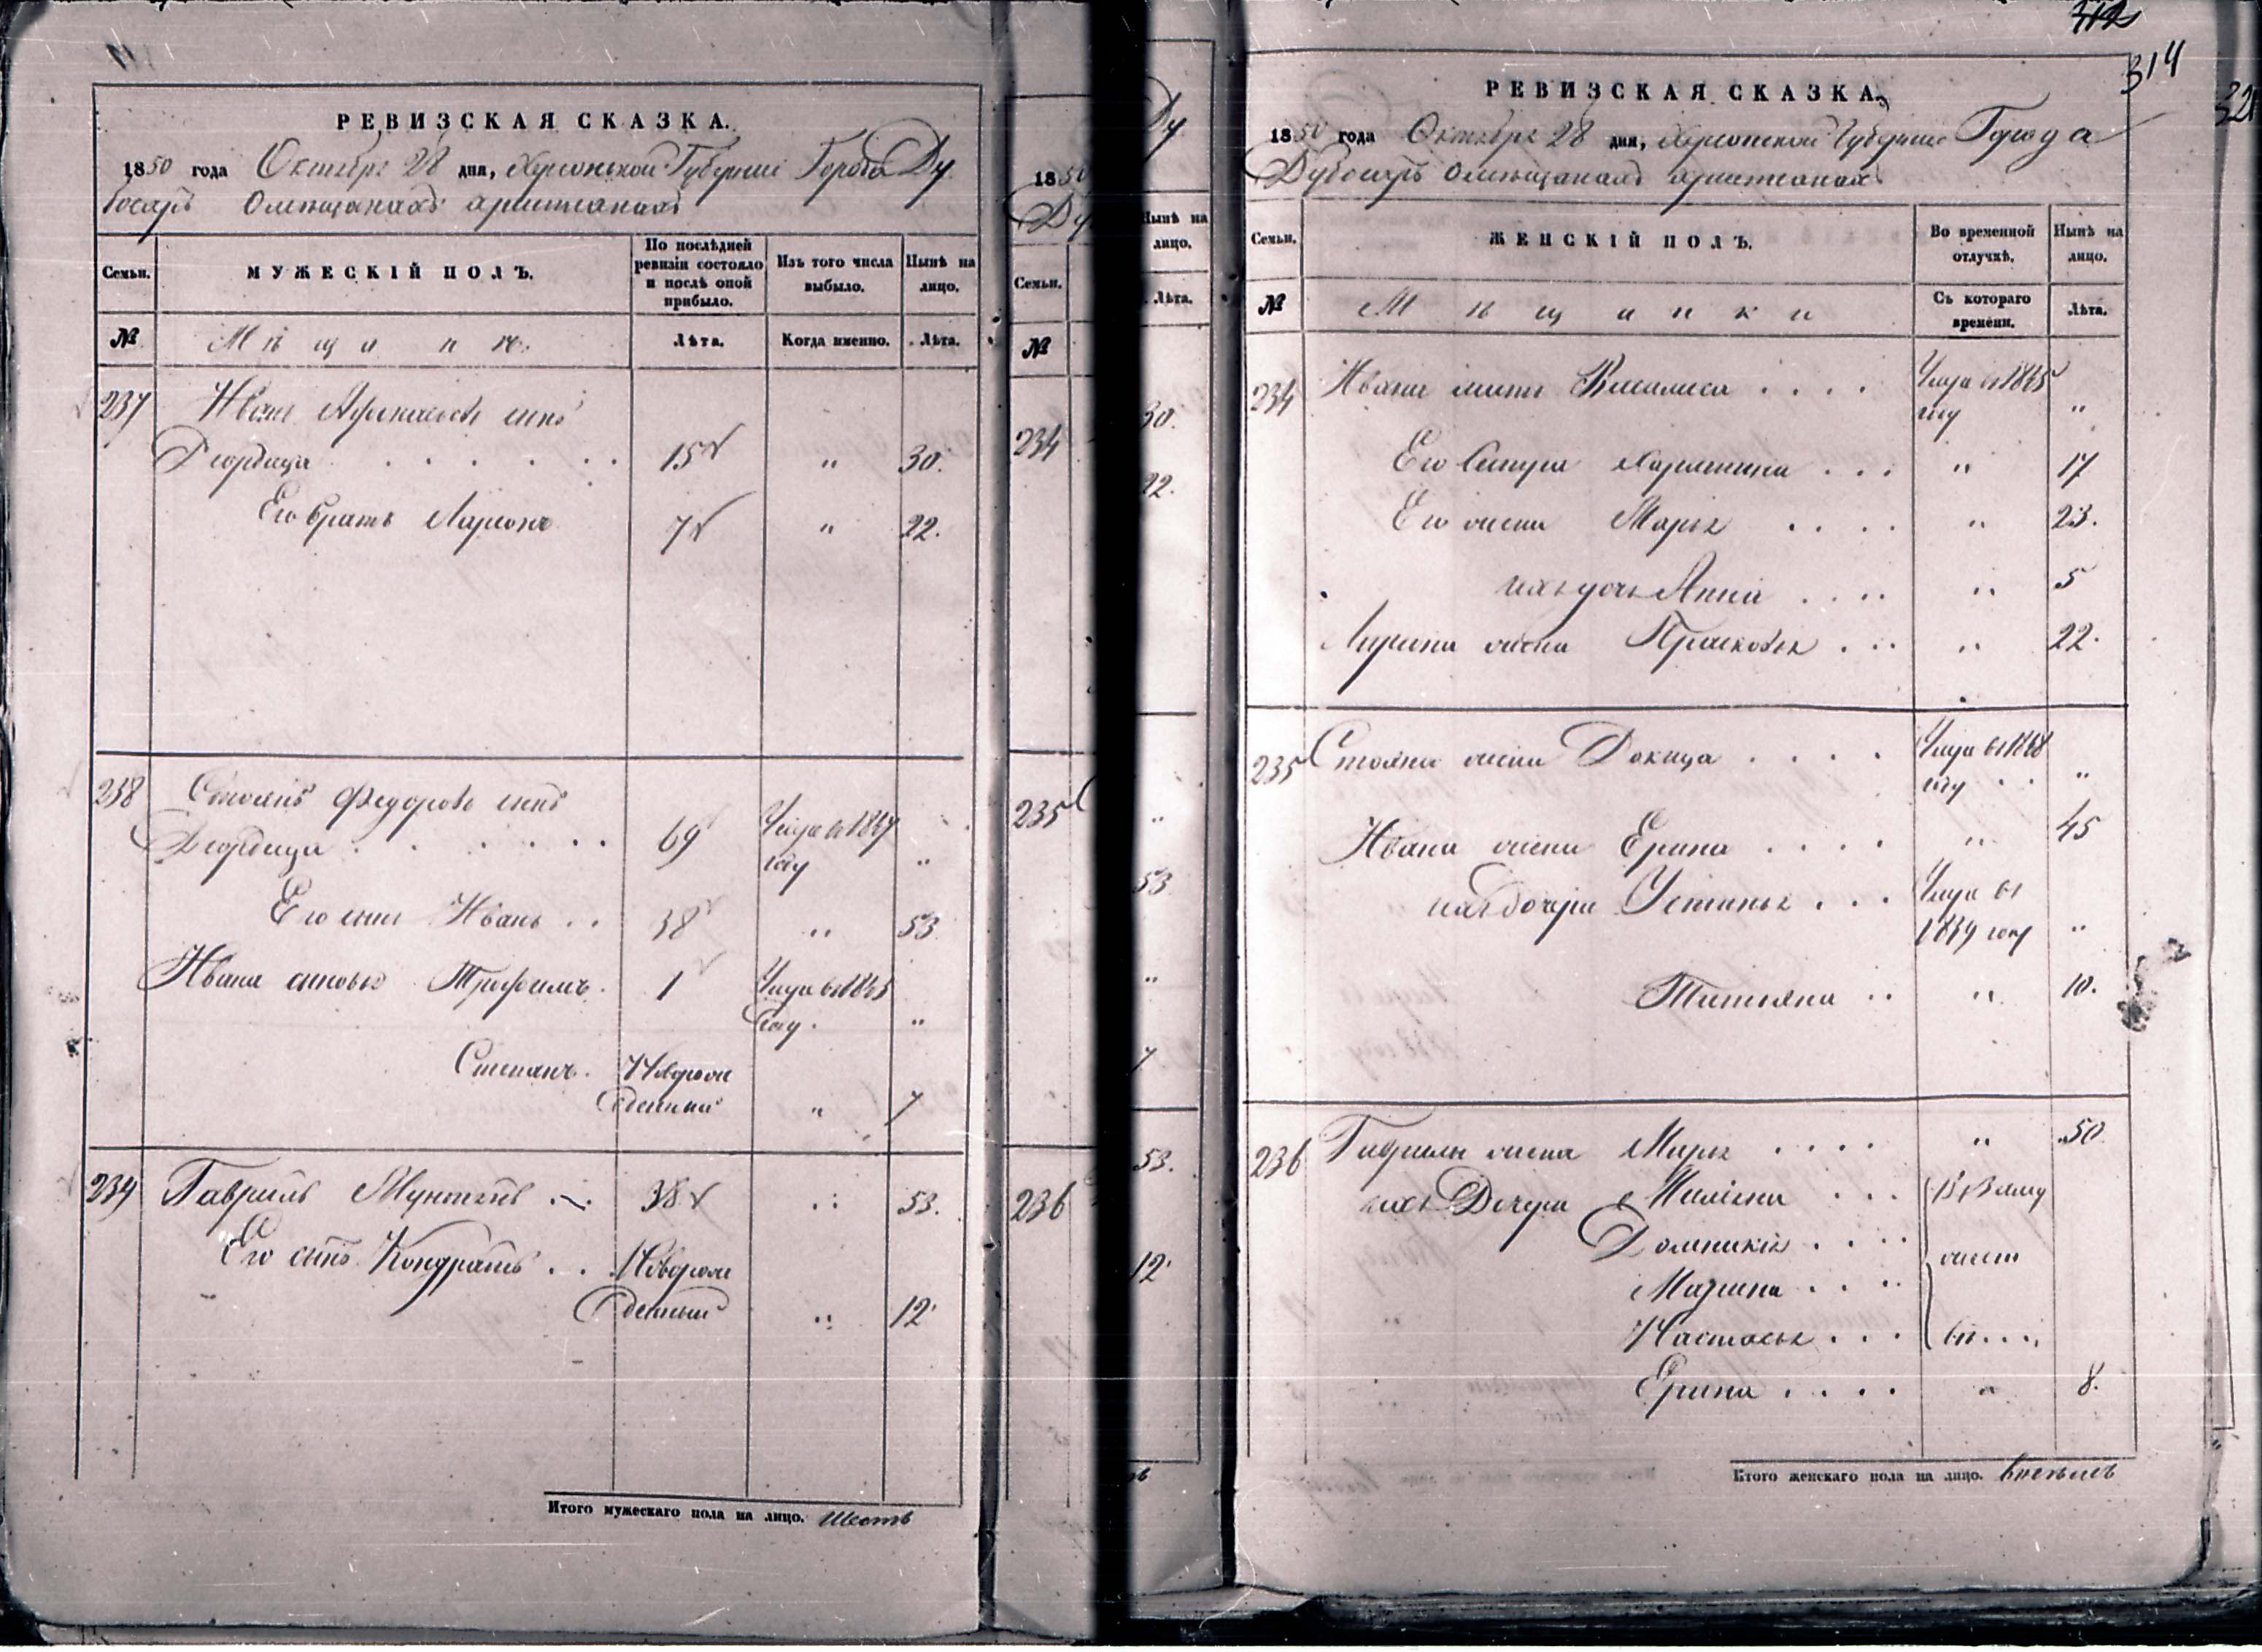 РЕВИЗСКАЯ СКАЗКА.
1850 года Октября 28 дня, Херсонской Губернии Города Ду
босаръ О мещанахъ христианахъ
Семьи.
МУЖЕСКІЙ ПОЛЪ.
По послѣдней ревизіи состояло и послѣ оной прибыло.
Изъ того числа выбыло.
Нынѣ на лицо.
№
Мѣщане
Лѣта.
Когда именно.
Лѣта.
237 Иванъ Афанасьевъ сынъ
Георгица . . . . . . 15 " 30.
Его братъ Ларионъ 7 " 22.
238 Стоянъ Федоровъ сынъ
Георгица . . . . . . 69 Умре въ 1847
году "
Его сынъ Иванъ . . 38 " 53
Ивана сыновья Трофимъ. 1 Умре въ 1845
году. "
Степанъ. Новорож
денный " 7
239 Гавриилъ Мунтянъ 38 " 53.
Его сынъ Кондратъ . . Новорож
денный " 12
Итого мужескаго пола на лицо. Шесть
1850
Ду
Семьи.
№
234
235
236
Ду
Нынѣ на
лицо.
Лѣта.
30.
22.
"
53
"
7
53.
12
312
314
32
РЕВИЗСКАЯ СКАЗКА.
1850 года Октября 28 дня, Херсонской Губернии Города
Дубосаръ О мещанахъ христианахъ
Семьи.
ЖЕНСКІЙ ПОЛЪ.
Во временной отлучкѣ.
Нынѣ на лицо.
№
Мѣщанки
Съ котораго времени.
Лѣта.
234 Ивана мать Василиса . . . . Умре въ 1845
году "
Его Сестра . . . " 17
Его жена Марья . . . . " 23.
ихъ дочь Анна . . . . " 5
жена Прасковья . . . " 22.
235 Стояна жена Докица . . . . Умре въ 1848
году "
Ивана жена Ерина . . . . " 45
ихъ дочери Устинья . . . Умре въ
1839 году "
Татьяна . . " 10.
236 Гаврилы жена Марья . . . . " 50.
ихъ Дочери . . . В Заму
Домникия . . . . жест
Марина . . . .
Настасья . . . ве....
Ерина . . . . " 8.
Итого женскаго пола на лицо. восемь